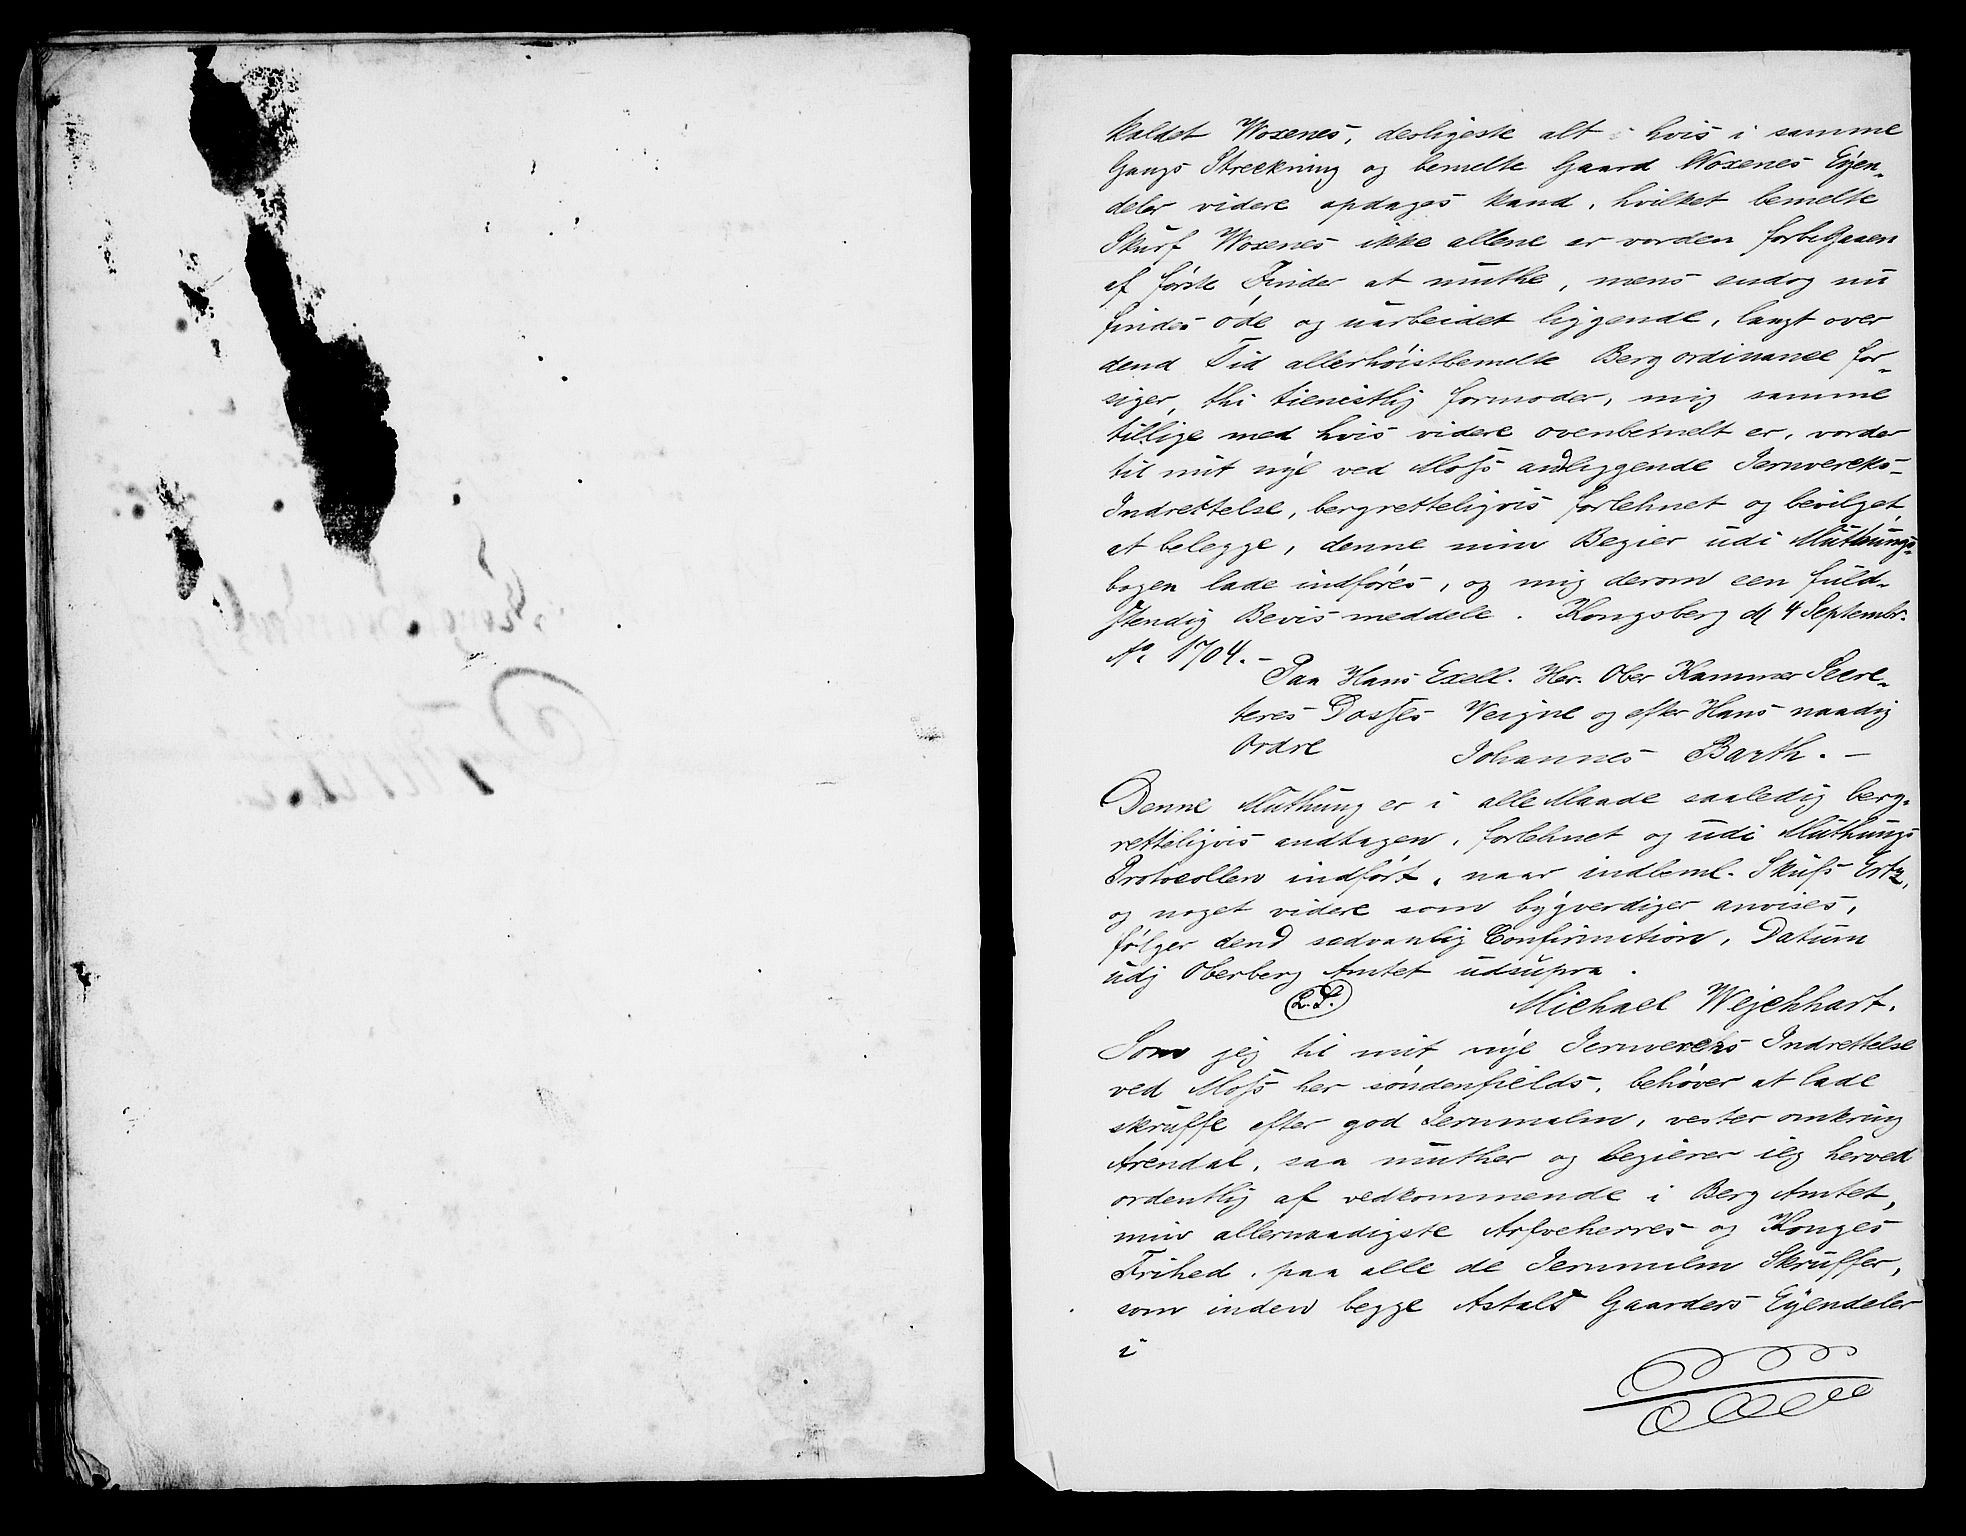 kaldet Woxenes, desligeste alt i hvis i samme
Gangs Streckning og bemelte Gaard Woxenes Eyen-
deler videre opdages kand, hvilket bemelte
Skurf Woxenes ikke allene er vorden forbegaaen
af første Finder at muthe, mens endog nu
findes öde og uarbeidet liggende, langt over
dend Tid allerhöistbemelte Bergordinance for-
siger, thi tienistlig formoder, mig samme
tillige med hvis videre ovenbemelt er, vorder
til mit nÿe ved Moss anliggende Jernvercks-
Indrettelse, bergretteligvis forlehnet og bevilget,
at belegge, denne min Begier udi Muthungs-
bogen lade indföres, og mig derom een fuld-
stendig Bevis meddele. Kongsberg d 4 Septembr.
Ao. 1704.-
Paa Hans Excell. Her. Ober Kammer Secre-
teres Dosses Veigne og efter Hans naadig
Ordre Johannes Barth. -
Denne Muthung er i alle Maade saaledig berg-
retteligvis andtagen, forlehnet og udi Muthungs
Protocollen indfört, naar indbeml. Skufs Ertz,
og noget videre som bÿgverdiger anvises,
fölger dend sedvanlig Confirmation, Datum
udj Oberberg Amtet udsupra.
L.S. Michael Wejehhart.
Som jeg til mit nÿe Jernvercks Indrettelse
ved Moss her söndenfields, behöver at lade
skruffe efter god Jernmalm, vester omkring
Arendal, saa muther og begierer ieg herved
ordentlig af vedkommende i Berg Amtet,
min allernaadigste Arfveherres og Konges
Frihed, paa alle de Jernmalm Skruffer,
som inden begge Astald Gaarders Eyendeler
i